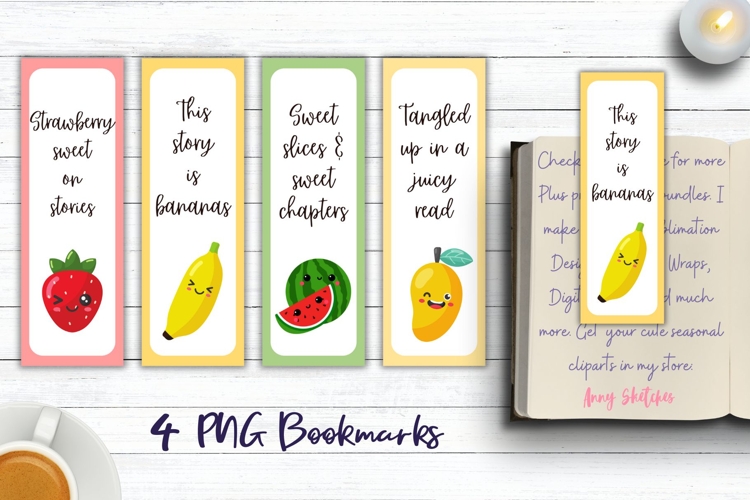 Strawberry
sweet
on
stories
This
story
is
bananas
Sweet
slices &
sweet
chapters
Tangled
up in a
juicy
read
This
story
is
bananas
Check
e for more
Plus p
bundles. I
make
blimation
Desi
Wraps,
Digit
d much
more. Get your cute seasonal
cliparts in my store.
Anny Sketches
4 PNG Bookmarks